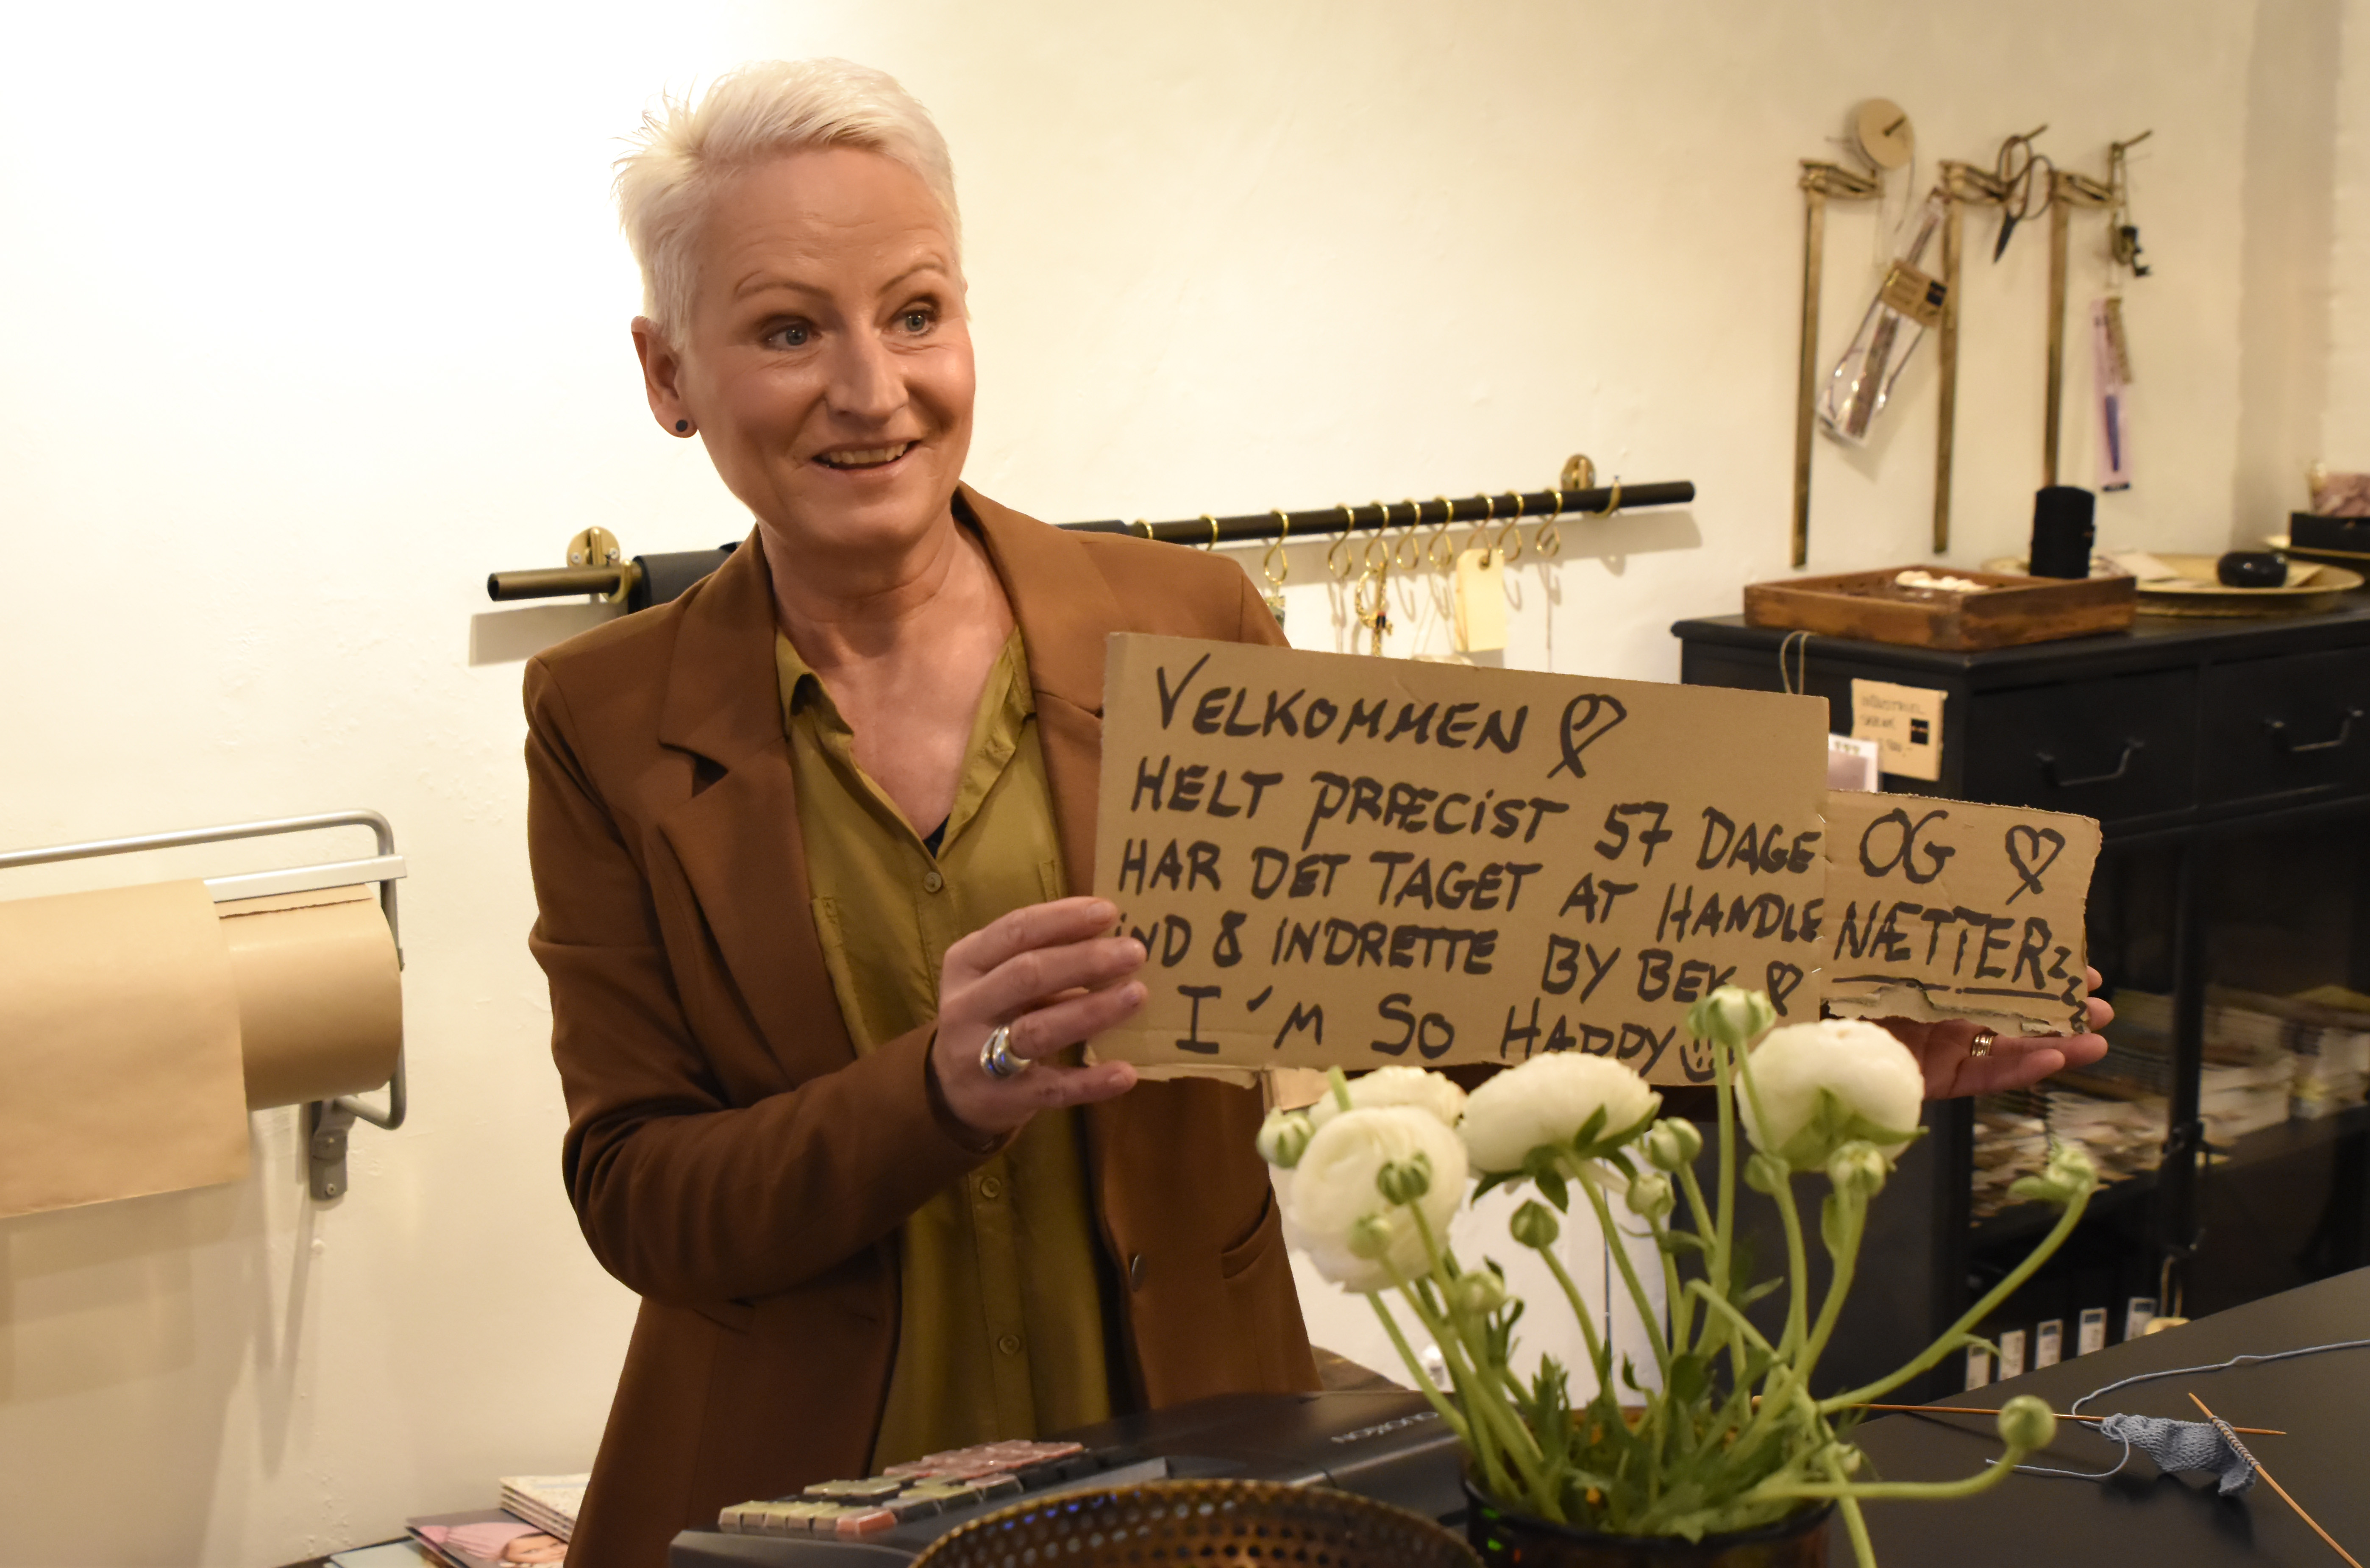 VELKOMMEN
HELT PRÆCIST 57 DAGE OG
HAR DET TAGET AT HANDLE NÆTTERzzz
IND & INDRETTE BY BEK
I'M SO HAPPY
QUORION